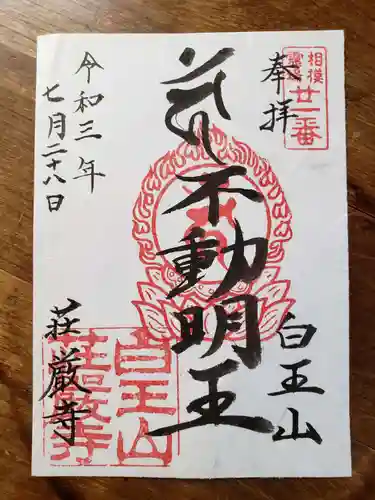 奉拝
相模
廿一番
白王山
不動明王
令和三年
七月二十八日
荘厳寺
白王山
荘厳寺